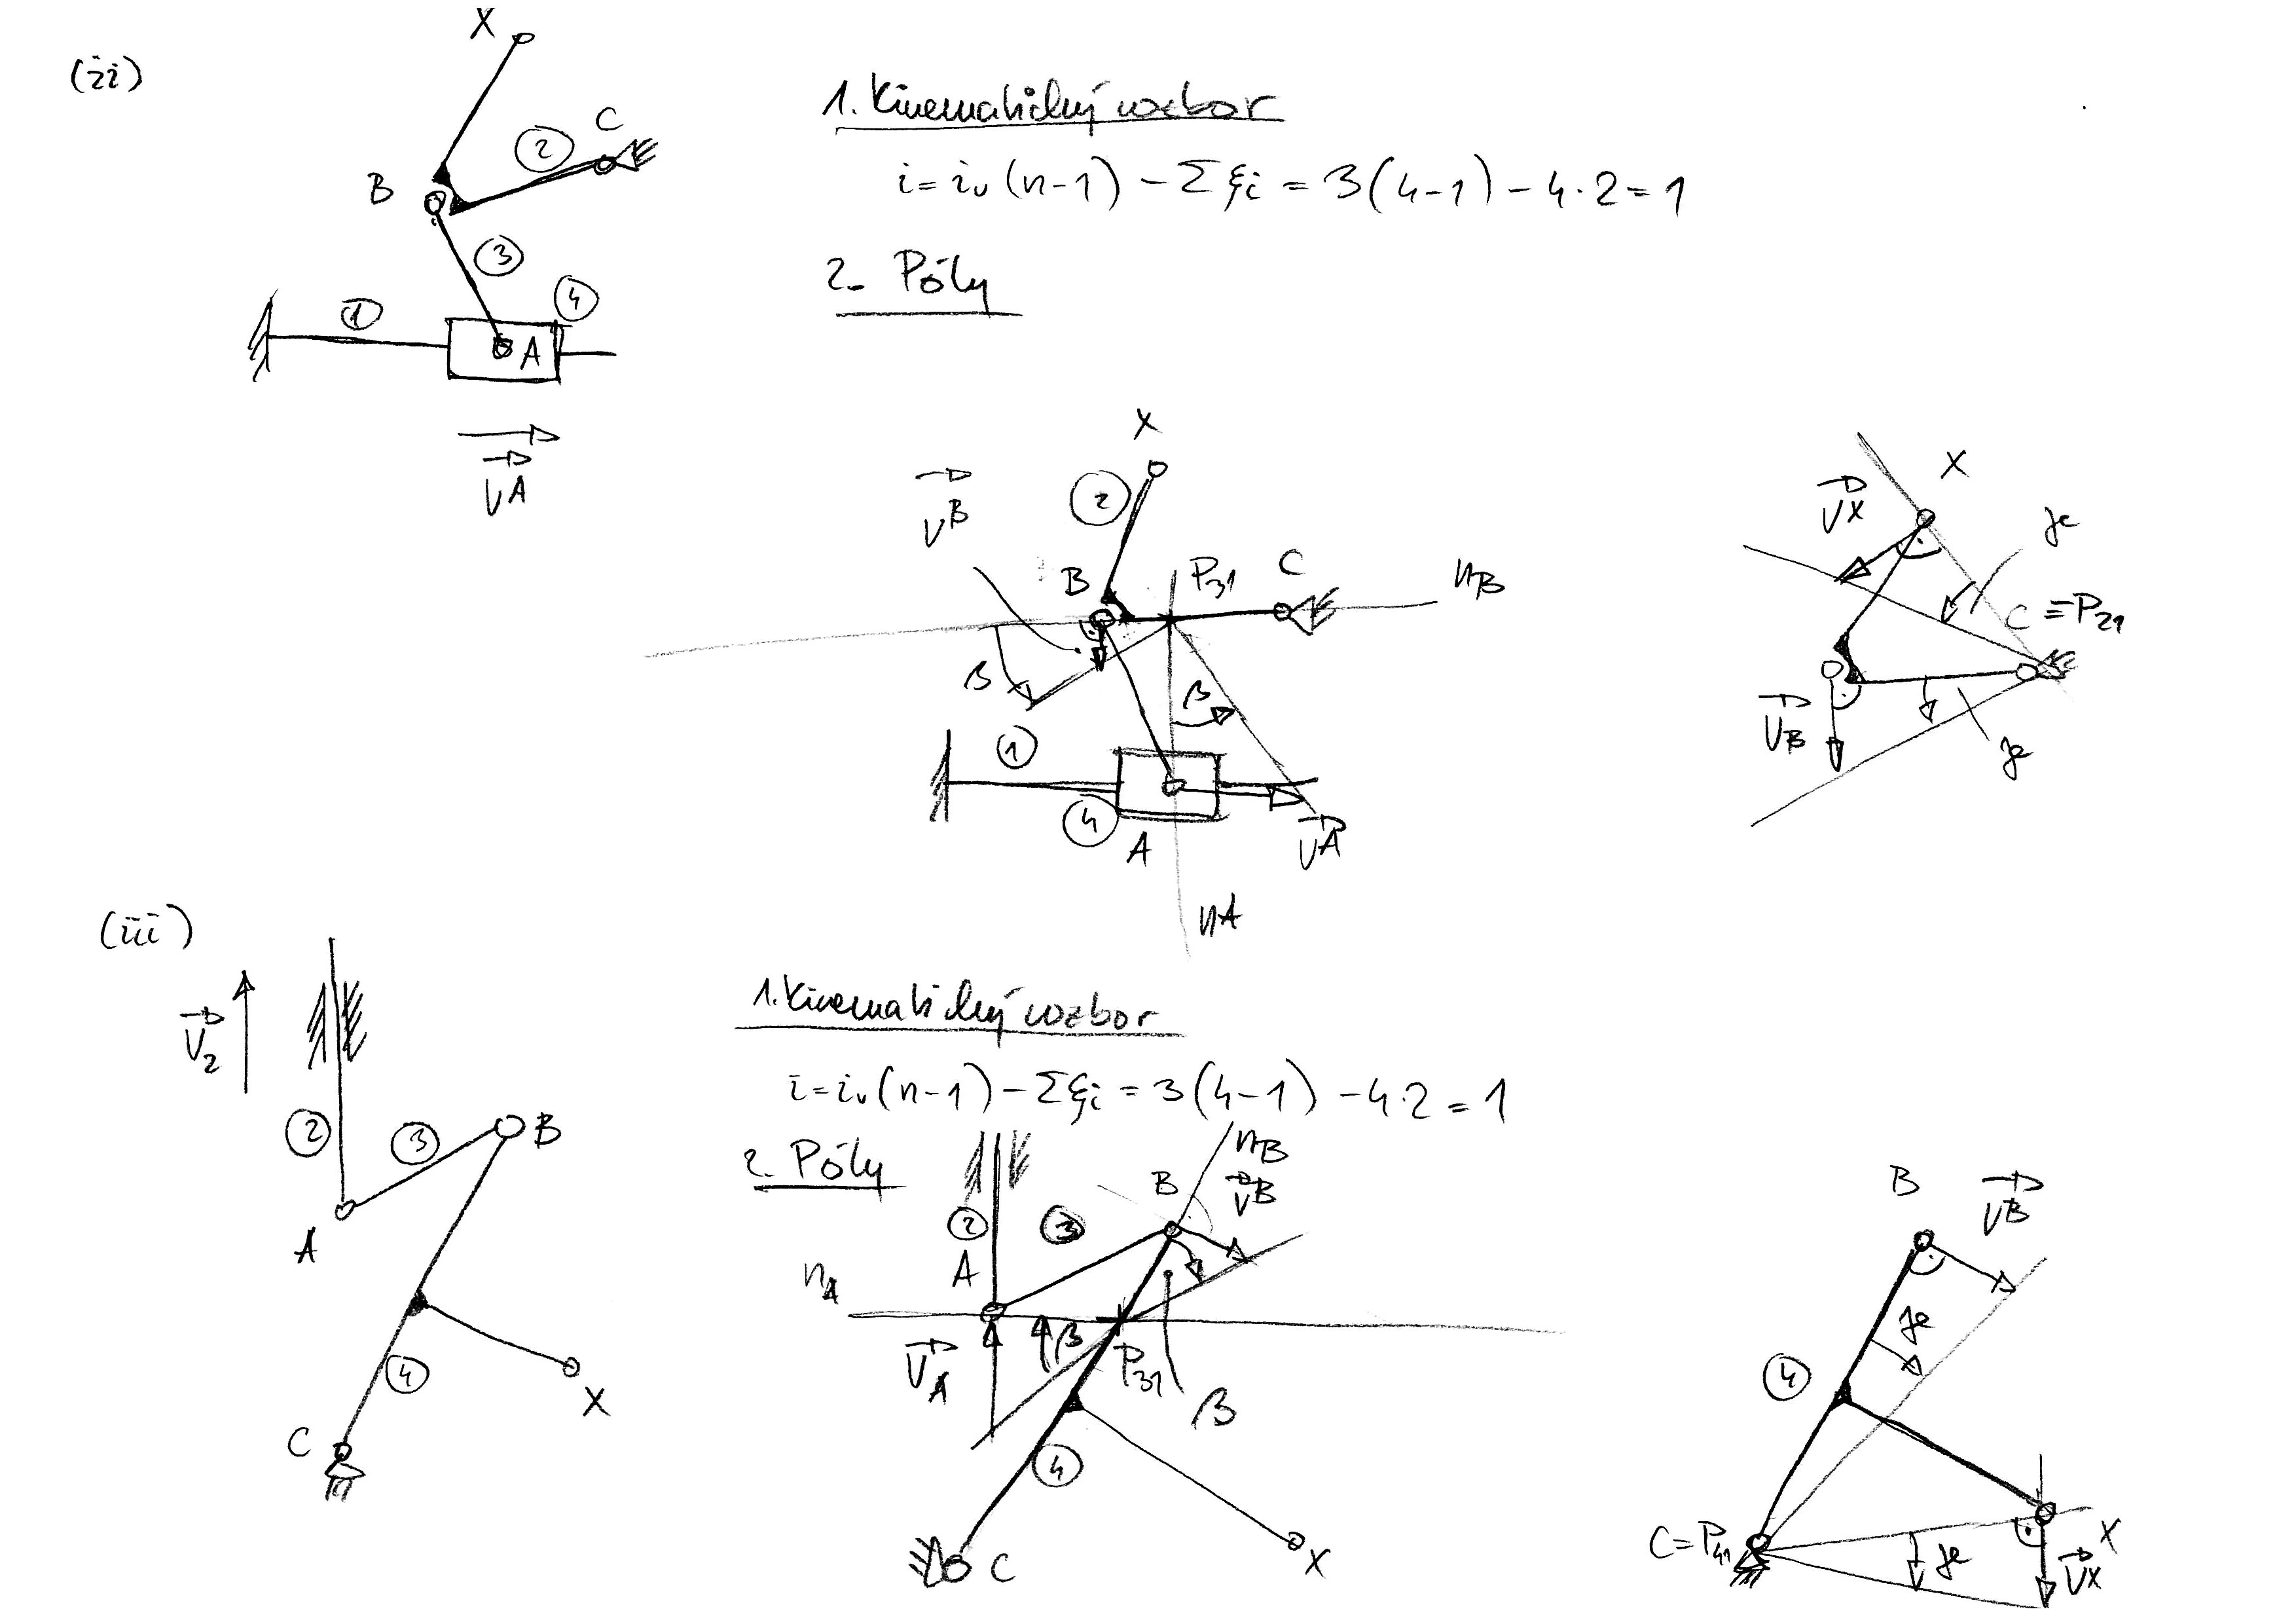 (ii)
X
B
C
2
3
1
4
A
v⃗A
1. Kinematický rozbor
i = iv (n-1) - Σξi = 3(4-1) - 4·2 = 1
2. Póly
X
2
v⃗B
B
P31
C
nB
β
β
1
4
A
v⃗A
nA
X
v⃗X
ϰ
C ≡ P21
v⃗B
ϰ
(iii)
v⃗2
2
3
B
A
4
C
X
1. Kinematický rozbor
i = iv (n-1) - Σξi = 3(4-1) - 4·2 = 1
2. Póly
nB
B
v⃗B
2
3
A
nA
v⃗A
β
P31
β
4
C
X
B
v⃗B
ϰ
4
C = P41
ϰ
X
v⃗X